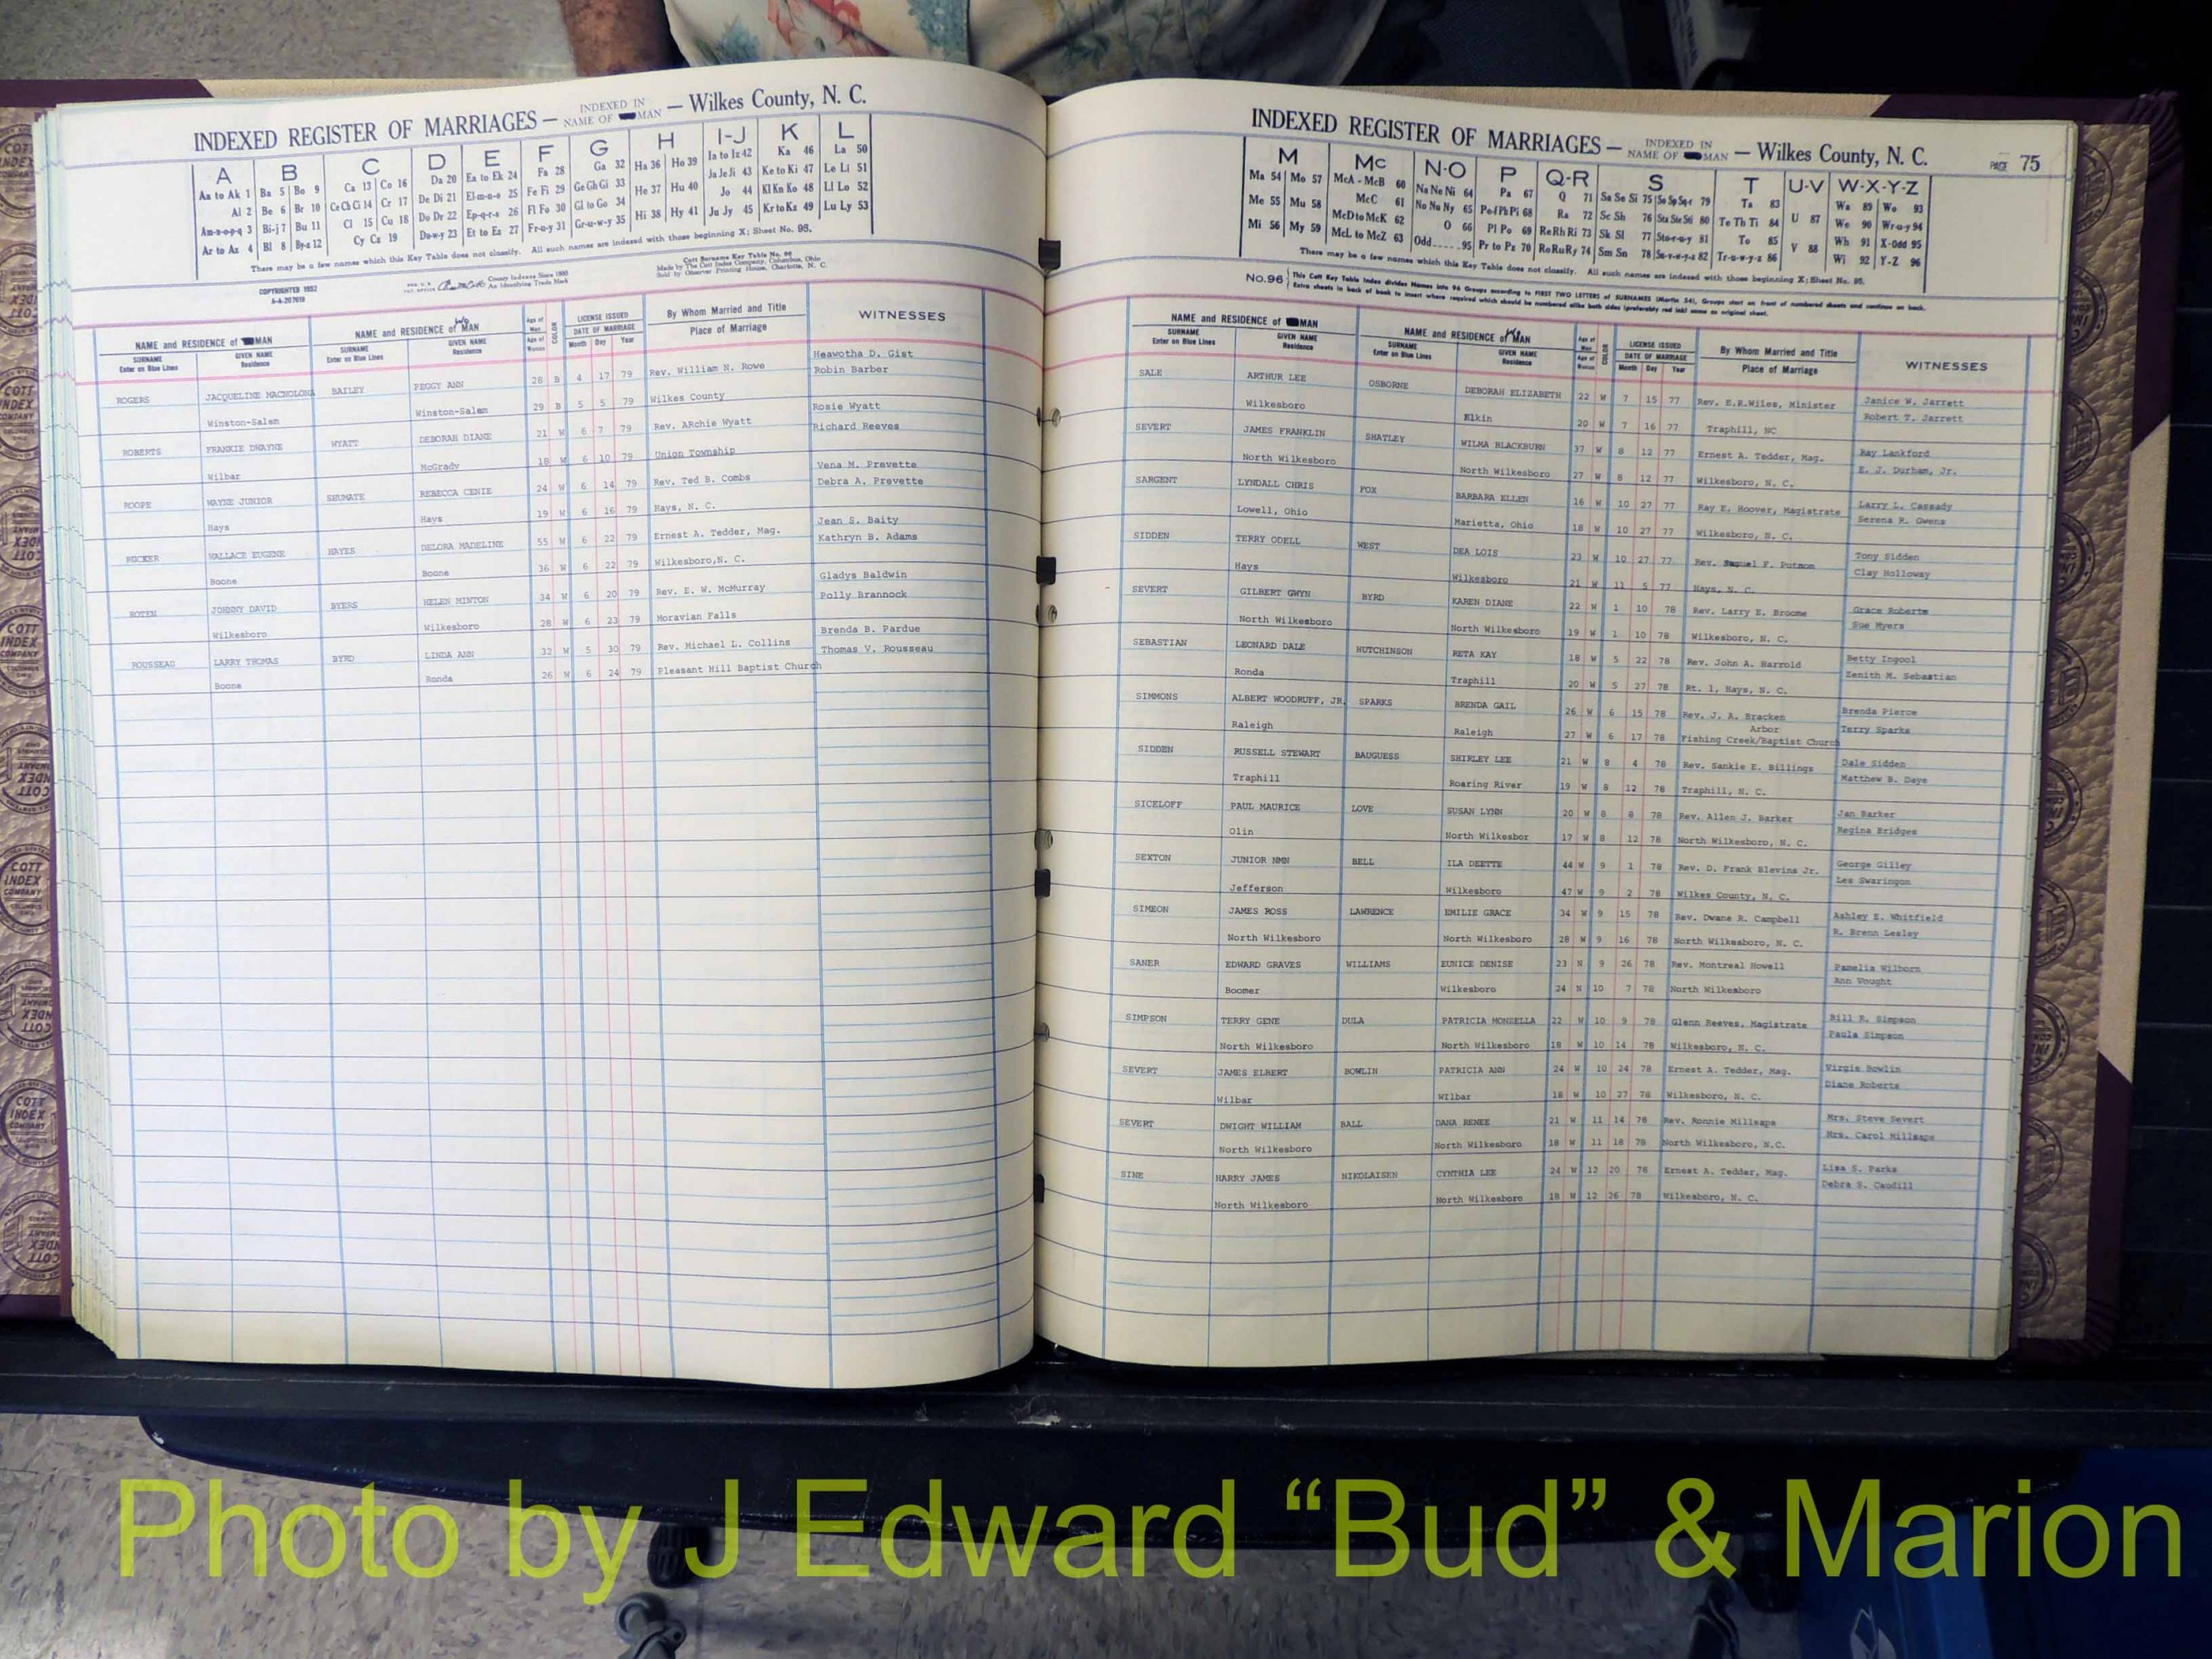 INDEXED REGISTER OF MARRIAGES — INDEXED IN NAME OF MAN — Wilkes County, N. C.
A B C D E F G H I-J K L
Aa to Ak 1 Ba 5 Bo 9 Ca 13 Co 16 Da 20 Ea to Ek 24 Fa 28 Ga 32 Ha 36 Ho 39 Ia to Iz 42 Ka 46 La 50
Al 2 Be 6 Br 10 Ce Ch Ci 14 Cr 17 De Di 21 El-m-n-o 25 Fe Fi 29 Ge Gh Gi 33 He 37 Hu 40 Ja Je Ji 43 Ke to Ki 47 Le Li 51
Am-n-o-p-q 3 Bi-j 7 Bu 11 Cl 15 Cu 18 Do Dr 22 Ep-q-r-s 26 Fl Fo 30 Gl to Go 34 Hi 38 Hy 41 Jo 44 Kl Kn Ko 48 Ll Lo 52
Ar to Az 4 Bl 8 By-z 12 Cy Cz 19 Du-w-y 23 Et to Ez 27 Fr-u-y 31 Gr-u-w-y 35 Ju Jy 45 Kr to Kz 49 Lu Ly 53
There may be a few names which this Key Table does not classify. All such names are indexed with those beginning X; Sheet No. 95.
COPYRIGHTED 1952
A-A-207619
County Indexes Since 1888
An Identifying Trade Mark
Cott Surname Key Table No. 96
Made by The Cott Index Company, Columbus, Ohio
Sold by Observer Printing House, Charlotte, N. C.
NAME and RESIDENCE of MAN NAME and RESIDENCE of WoMAN Age of Man Age of Woman COLOR LICENSE ISSUED DATE OF MARRIAGE By Whom Married and Title Place of Marriage WITNESSES
SURNAME Enter on Blue Lines GIVEN NAME Residence SURNAME Enter on Blue Lines GIVEN NAME Residence Month Day Year
Heawotha D. Gist
ROGERS JACQUELINE MACNOLONA BAILEY PEGGY ANN 28 B 4 17 79 Rev. William N. Rowe Robin Barber
Winston-Salem Winston-Salem 29 B 5 5 79 Wilkes County
Rosie Wyatt
ROBERTS FRANKIE DWAYNE WYATT DEBORAH DIANE 21 W 6 7 79 Rev. ARchie Wyatt Richard Reeves
Wilbar McGrady 18 W 6 10 79 Union Township
Vena M. Prevette
ROOPE WAYNE JUNIOR SHUMATE REBECCA CENIE 24 W 6 14 79 Rev. Ted B. Combs Debra A. Prevette
Hays Hays 19 W 6 16 79 Hays, N. C.
Jean S. Baity
RUCKER WALLACE EUGENE HAYES DELORA MADELINE 55 W 6 22 79 Ernest A. Tedder, Mag. Kathryn B. Adams
Boone Boone 36 W 6 22 79 Wilkesboro,N. C.
Gladys Baldwin
ROTEN JOHNNY DAVID BYERS HELEN MINTON 34 W 6 20 79 Rev. E. W. McMurray Polly Brannock
Wilkesboro Wilkesboro 28 W 6 23 79 Moravian Falls
Brenda B. Pardue
ROUSSEAU LARRY THOMAS BYRD LINDA ANN 32 W 5 30 79 Rev. Michael L. Collins Thomas V. Rousseau
Boone Ronda 26 W 6 24 79 Pleasant Hill Baptist Church
INDEXED REGISTER OF MARRIAGES — INDEXED IN NAME OF MAN — Wilkes County, N. C.
PAGE 75
M Mc N-O P Q-R S T U-V W-X-Y-Z
Ma 54 Mo 57 McA - McB 60 Na Ne Ni 64 Pa 67 Q 71 Sa Se Si 75 So Sp Sq-r 79 Ta 83 Wa 89 Wo 93
Me 55 Mu 58 McC 61 No Nu Ny 65 Pe-f Ph Pi 68 Ra 72 Sc Sh 76 Sta Ste Sti 80 Te Th Ti 84 U 87 We 90 Wr-u-y 94
McD to McK 62 O 66 Pl Po 69 Re Rh Ri 73 Sk Sl 77 Sto-r-u-y 81 To 85 Wh 91 X-Odd 95
Mi 56 My 59 McL to McZ 63 Odd 95 Pr to Pz 70 Ro Ru Ry 74 Sm Sn 78 Su-v-w-y-z 82 Tr-u-w-y-z 86 V 88 Wi 92 Y-Z 96
There may be a few names which this Key Table does not classify. All such names are indexed with those beginning X; Sheet No. 95.
No.96 This Cott Key Table Index divides Names into 96 Groups according to FIRST TWO LETTERS of SURNAMES (Martin 54). Groups start on front of numbered sheets and continue on back.
Extra sheets in back of book to insert where required which should be numbered alike both sides (preferably red ink) same as original sheet.
NAME and RESIDENCE of MAN NAME and RESIDENCE of WoMAN Age of Man Age of Woman COLOR LICENSE ISSUED DATE OF MARRIAGE By Whom Married and Title Place of Marriage WITNESSES
SURNAME Enter on Blue Lines GIVEN NAME Residence SURNAME Enter on Blue Lines GIVEN NAME Residence Month Day Year
SALE ARTHUR LEE OSBORNE DEBORAH ELIZABETH 22 W 7 15 77 Rev. E.R.Wiles, Minister Janice W. Jarrett
Wilkesboro Elkin 20 W 7 16 77 Traphill, NC Robert T. Jarrett
SEVERT JAMES FRANKLIN SHATLEY WILMA BLACKBURN 37 W 8 12 77 Ernest A. Tedder, Mag. Ray Lankford
North Wilkesboro North Wilkesboro 27 W 8 12 77 Wilkesboro, N. C. E. J. Durham, Jr.
SARGENT LYNDALL CHRIS FOX BARBARA ELLEN 16 W 10 27 77 Ray E. Hoover, Magistrate Larry L. Cassady
Lowell, Ohio Marietta, Ohio 18 W 10 27 77 Wilkesboro, N. C. Serena R. Owens
SIDDEN TERRY ODELL WEST DEA LOIS 23 W 10 27 77 Rev. Samuel F. Putnom Tony Sidden
Hays Wilkesboro 21 W 11 5 77 Hays, N. C. Clay Holloway
SEVERT GILBERT GWYN BYRD KAREN DIANE 22 W 1 10 78 Rev. Larry E. Broome Grace Roberts
North Wilkesboro North Wilkesboro 19 W 1 10 78 Wilkesboro, N. C. Sue Myers
SEBASTIAN LEONARD DALE HUTCHINSON RETA KAY 18 W 5 22 78 Rev. John A. Harrold Betty Ingool
Ronda Traphill 20 W 5 27 78 Rt. 1, Hays, N. C. Zenith M. Sebastian
SIMMONS ALBERT WOODRUFF, JR. SPARKS BRENDA GAIL 26 W 6 15 78 Rev. J. A. Bracken Brenda Pierce
Arbor
Raleigh Raleigh 27 W 6 17 78 Fishing Creek/Baptist Church Terry Sparks
SIDDEN RUSSELL STEWART BAUGUESS SHIRLEY LEE 21 W 8 4 78 Rev. Sankie E. Billings Dale Sidden
Traphill Roaring River 19 W 8 12 78 Traphill, N. C. Matthew B. Daye
SICELOFF PAUL MAURICE LOVE SUSAN LYNN 20 W 8 8 78 Rev. Allen J. Barker Jan Barker
Olin North Wilkesbor 17 W 8 12 78 North Wilkesboro, N. C. Regina Bridges
SEXTON JUNIOR NMN BELL ILA DEETTE 44 W 9 1 78 Rev. D. Frank Blevins Jr. George Gilley
Jefferson Wilkesboro 47 W 9 2 78 Wilkes County, N. C. Les Swaringon
SIMEON JAMES ROSS LAWRENCE EMILIE GRACE 34 W 9 15 78 Rev. Dwane R. Campbell Ashley E. Whitfield
North Wilkesboro North Wilkesboro 28 W 9 16 78 North Wilkesboro, N. C. R. Brenn Lesley
SANER EDWARD GRAVES WILLIAMS EUNICE DENISE 23 N 9 26 78 Rev. Montreal Howell Pamelia Wilborn
Boomer Wilkesboro 24 N 10 7 78 North Wilkesboro Ann Vought
SIMPSON TERRY GENE DULA PATRICIA MONZELLA 22 W 10 9 78 Glenn Reeves, Magistrate Bill R. Simpson
North Wilkesboro North Wilkesboro 18 W 10 14 78 Wilkesboro, N. C. Paula Simpson
SEVERT JAMES ELBERT BOWLIN PATRICIA ANN 24 W 10 24 78 Ernest A. Tedder, Mag. Virgie Bowlin
Wilbar WIlbar 18 W 10 27 78 Wilkesboro, N. C. Diane Roberts
SEVERT DWIGHT WILLIAM BALL DANA RENEE 21 W 11 14 78 Rev. Ronnie Millsaps Mrs. Steve Severt
North Wilkesboro North Wilkesboro 18 W 11 18 78 North Wilkesboro, N.C. Mrs. Carol Millsaps
SINE HARRY JAMES NIKOLAISEN CYNTHIA LEE 24 W 12 20 78 Ernest A. Tedder, Mag. Lisa S. Parks
North Wilkesboro North Wilkesboro 18 W 12 26 78 Wilkesboro, N. C. Debra S. Caudill
Photo by J Edward “Bud” & Marion